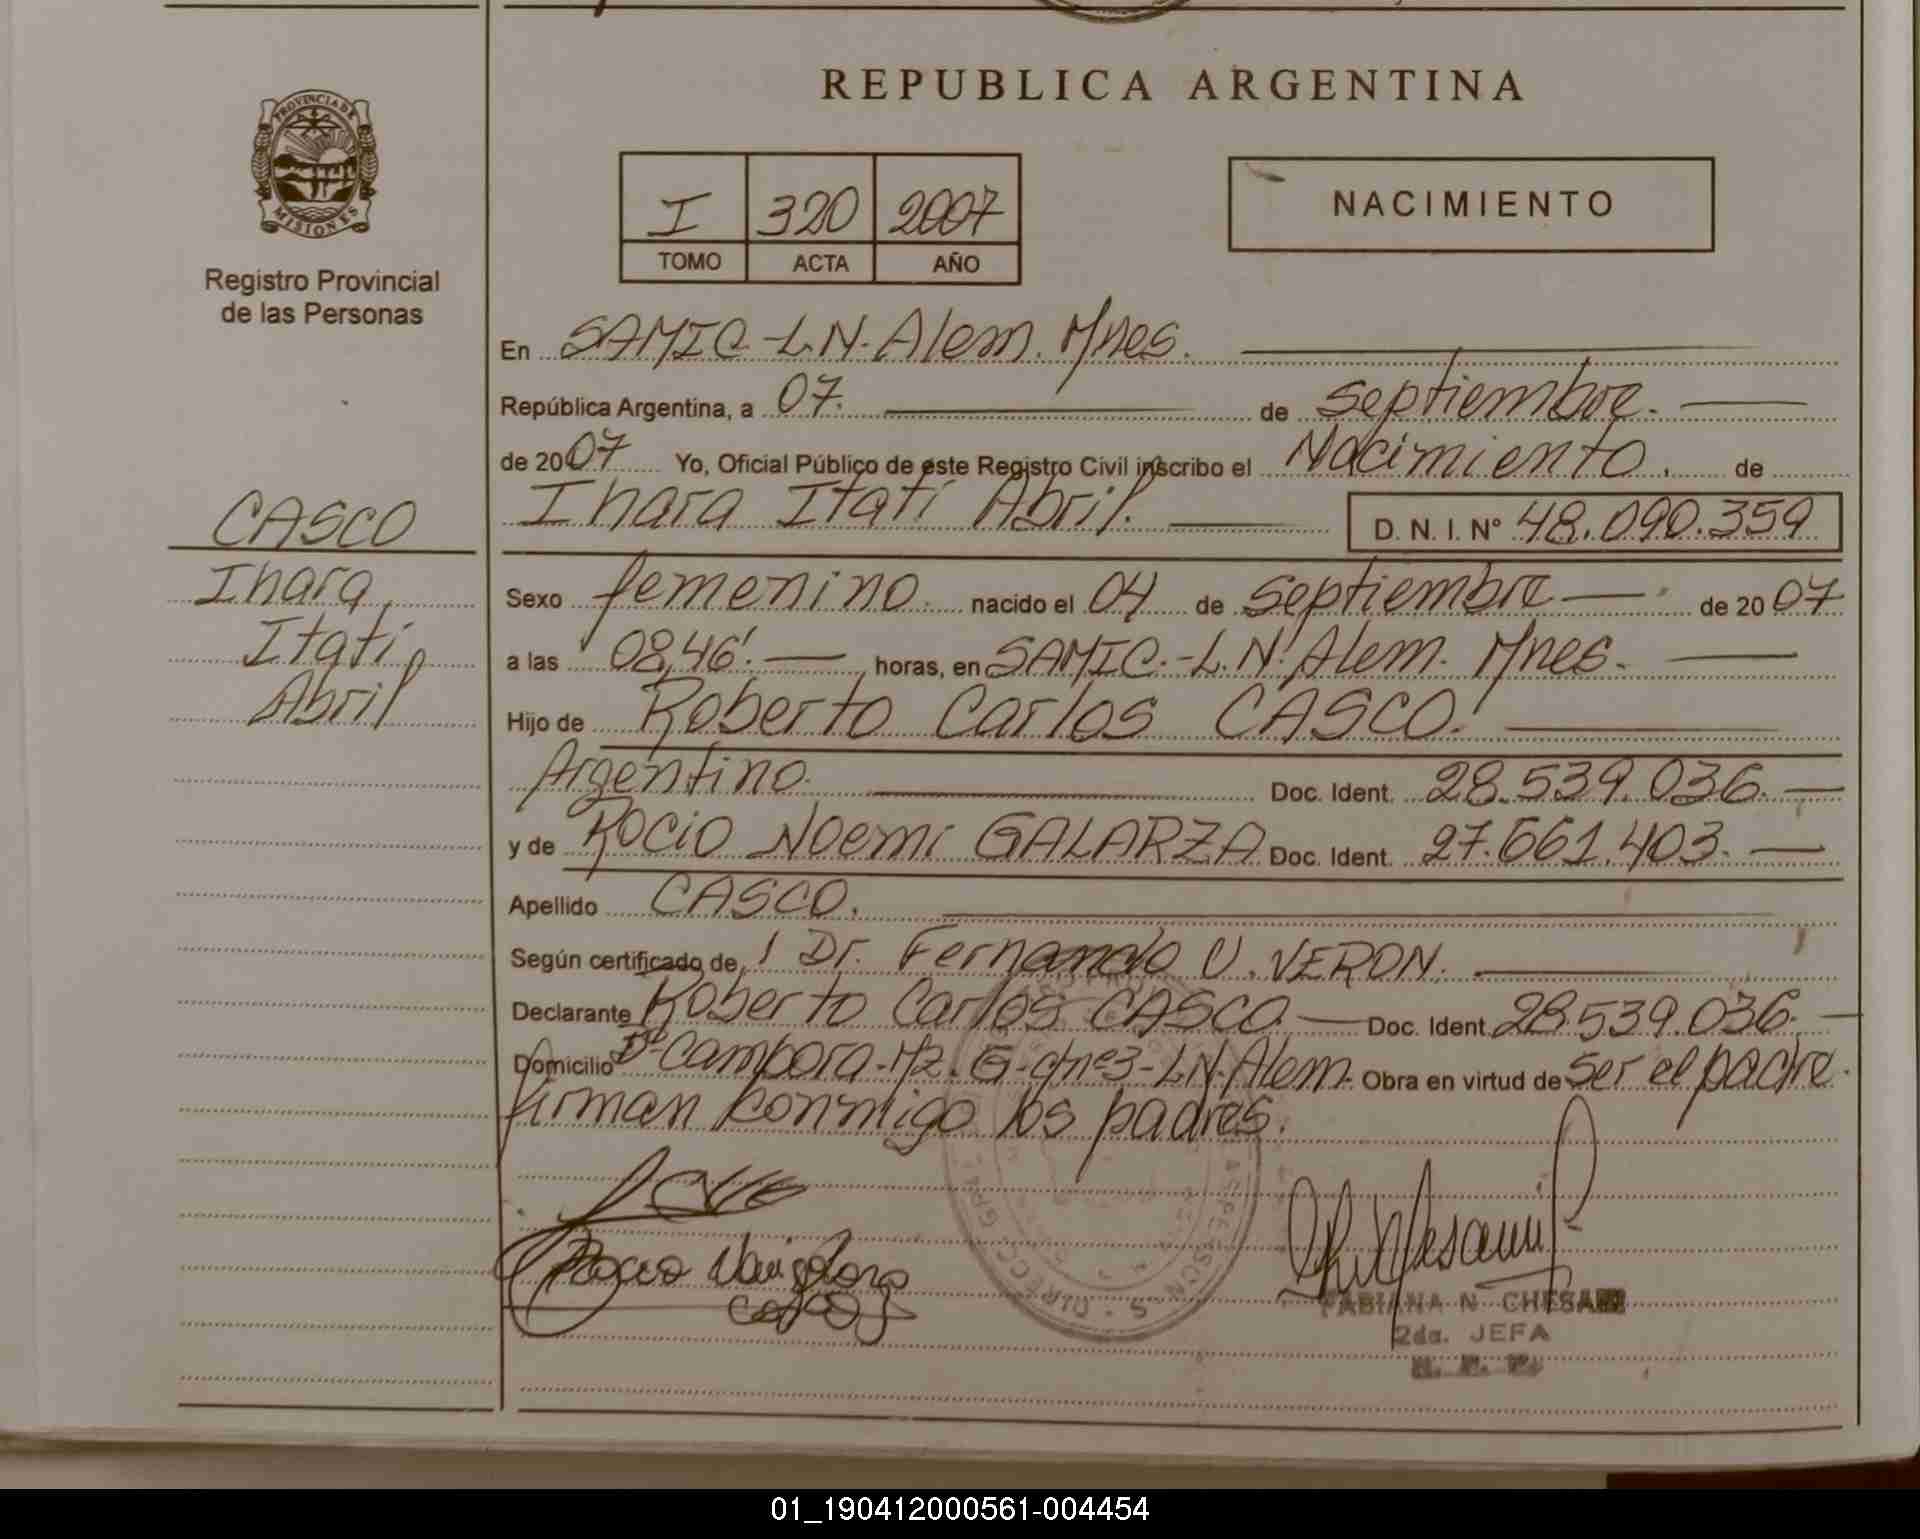 REPUBLICA ARGENTINA
PROVINCIA DE MISIONES
Registro Provincial
de las Personas
I 320 2007
TOMO ACTA AÑO
NACIMIENTO
En SAMIC-L.N.Alem. Mnes.
República Argentina, a 07. de septiembre.
de 2007 Yo, Oficial Público de este Registro Civil inscribo el Nacimiento. de
Inara Itatí Abril. D. N. I. N° 48.090.359
CASCO
Inara,
Itatí
Abril
Sexo femenino nacido el 04 de septiembre de 2007
a las 08,46'. horas, en SAMIC.-L.N.Alem. Mnes.
Hijo de Roberto Carlos CASCO.
Argentino. Doc. Ident. 28.539.036.
y de Rocio Noemi GALARZA Doc. Ident. 27.661.403.
Apellido CASCO.
Según certificado de Dr. Fernando U. VERON.
Declarante Roberto Carlos CASCO Doc. Ident. 28539.036.
Domicilio Campora-Mz.G-c/nº3-L.N.Alem. Obra en virtud de ser el padre.
firman conmigo los padres.
FABIANA N. CHESA
2da. JEFA
01_190412000561-004454